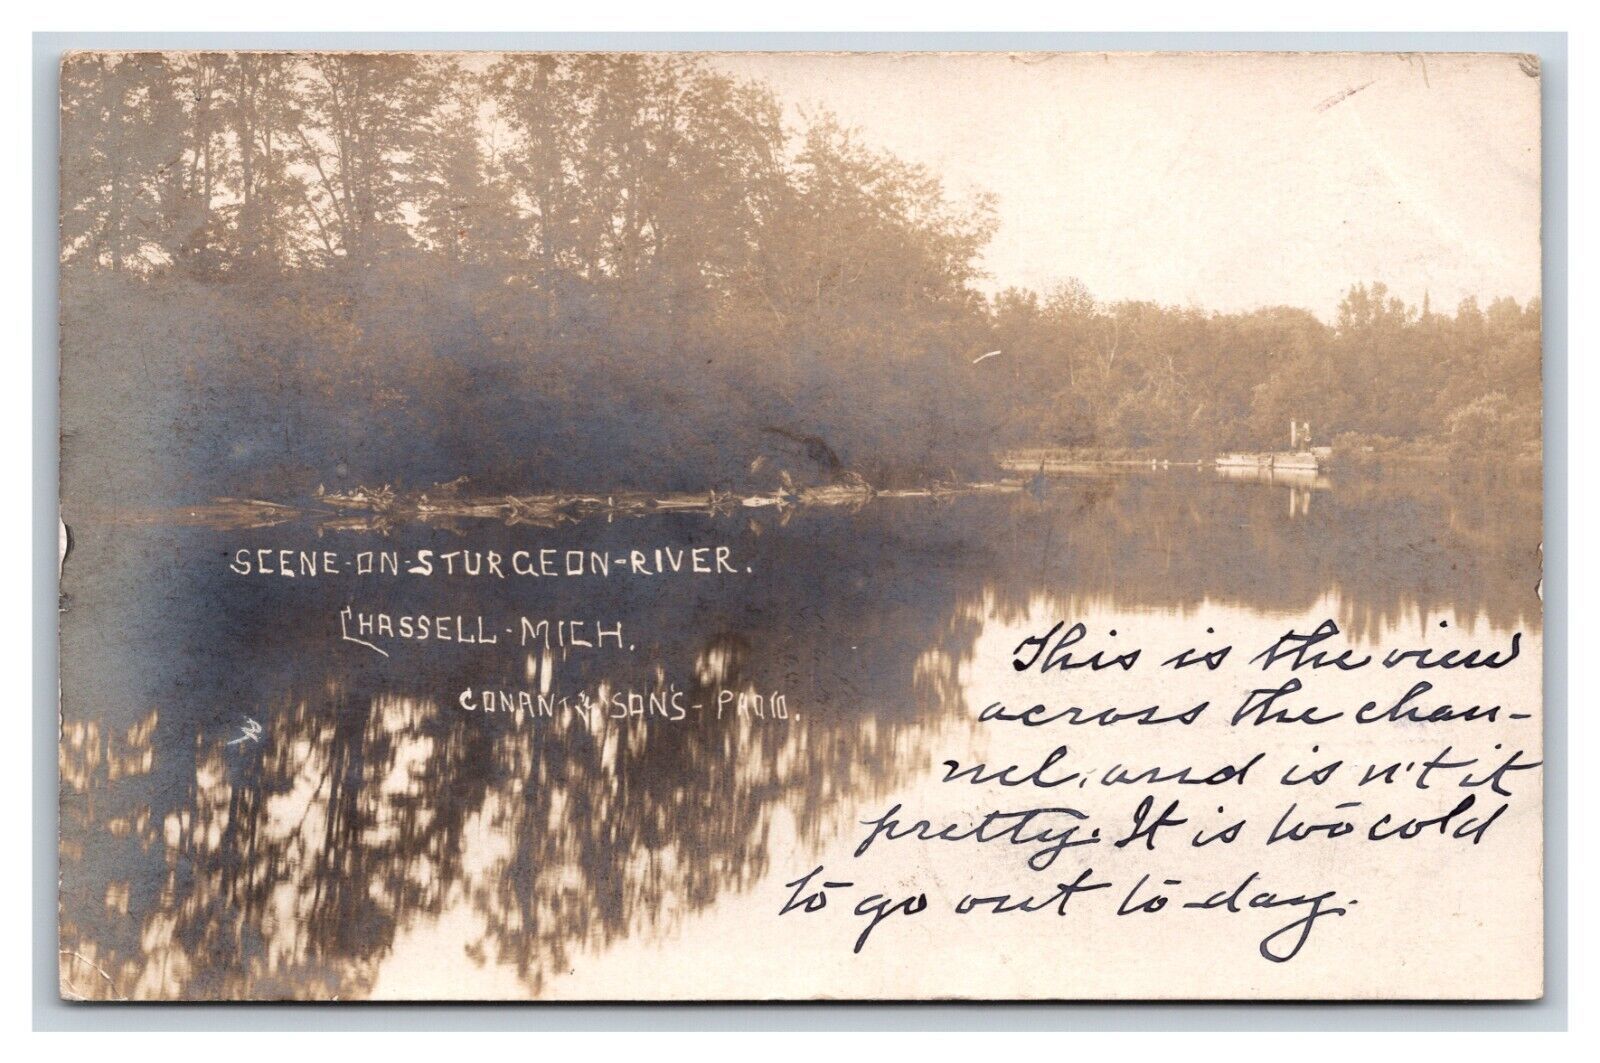 SCENE-ON-STURGEON-RIVER.
CHASSELL-MICH.
CONANT & SON'S-PHOTO.
This is the view
across the chan-
nel, and is n't it
pretty. It is too cold
to go out to-day.